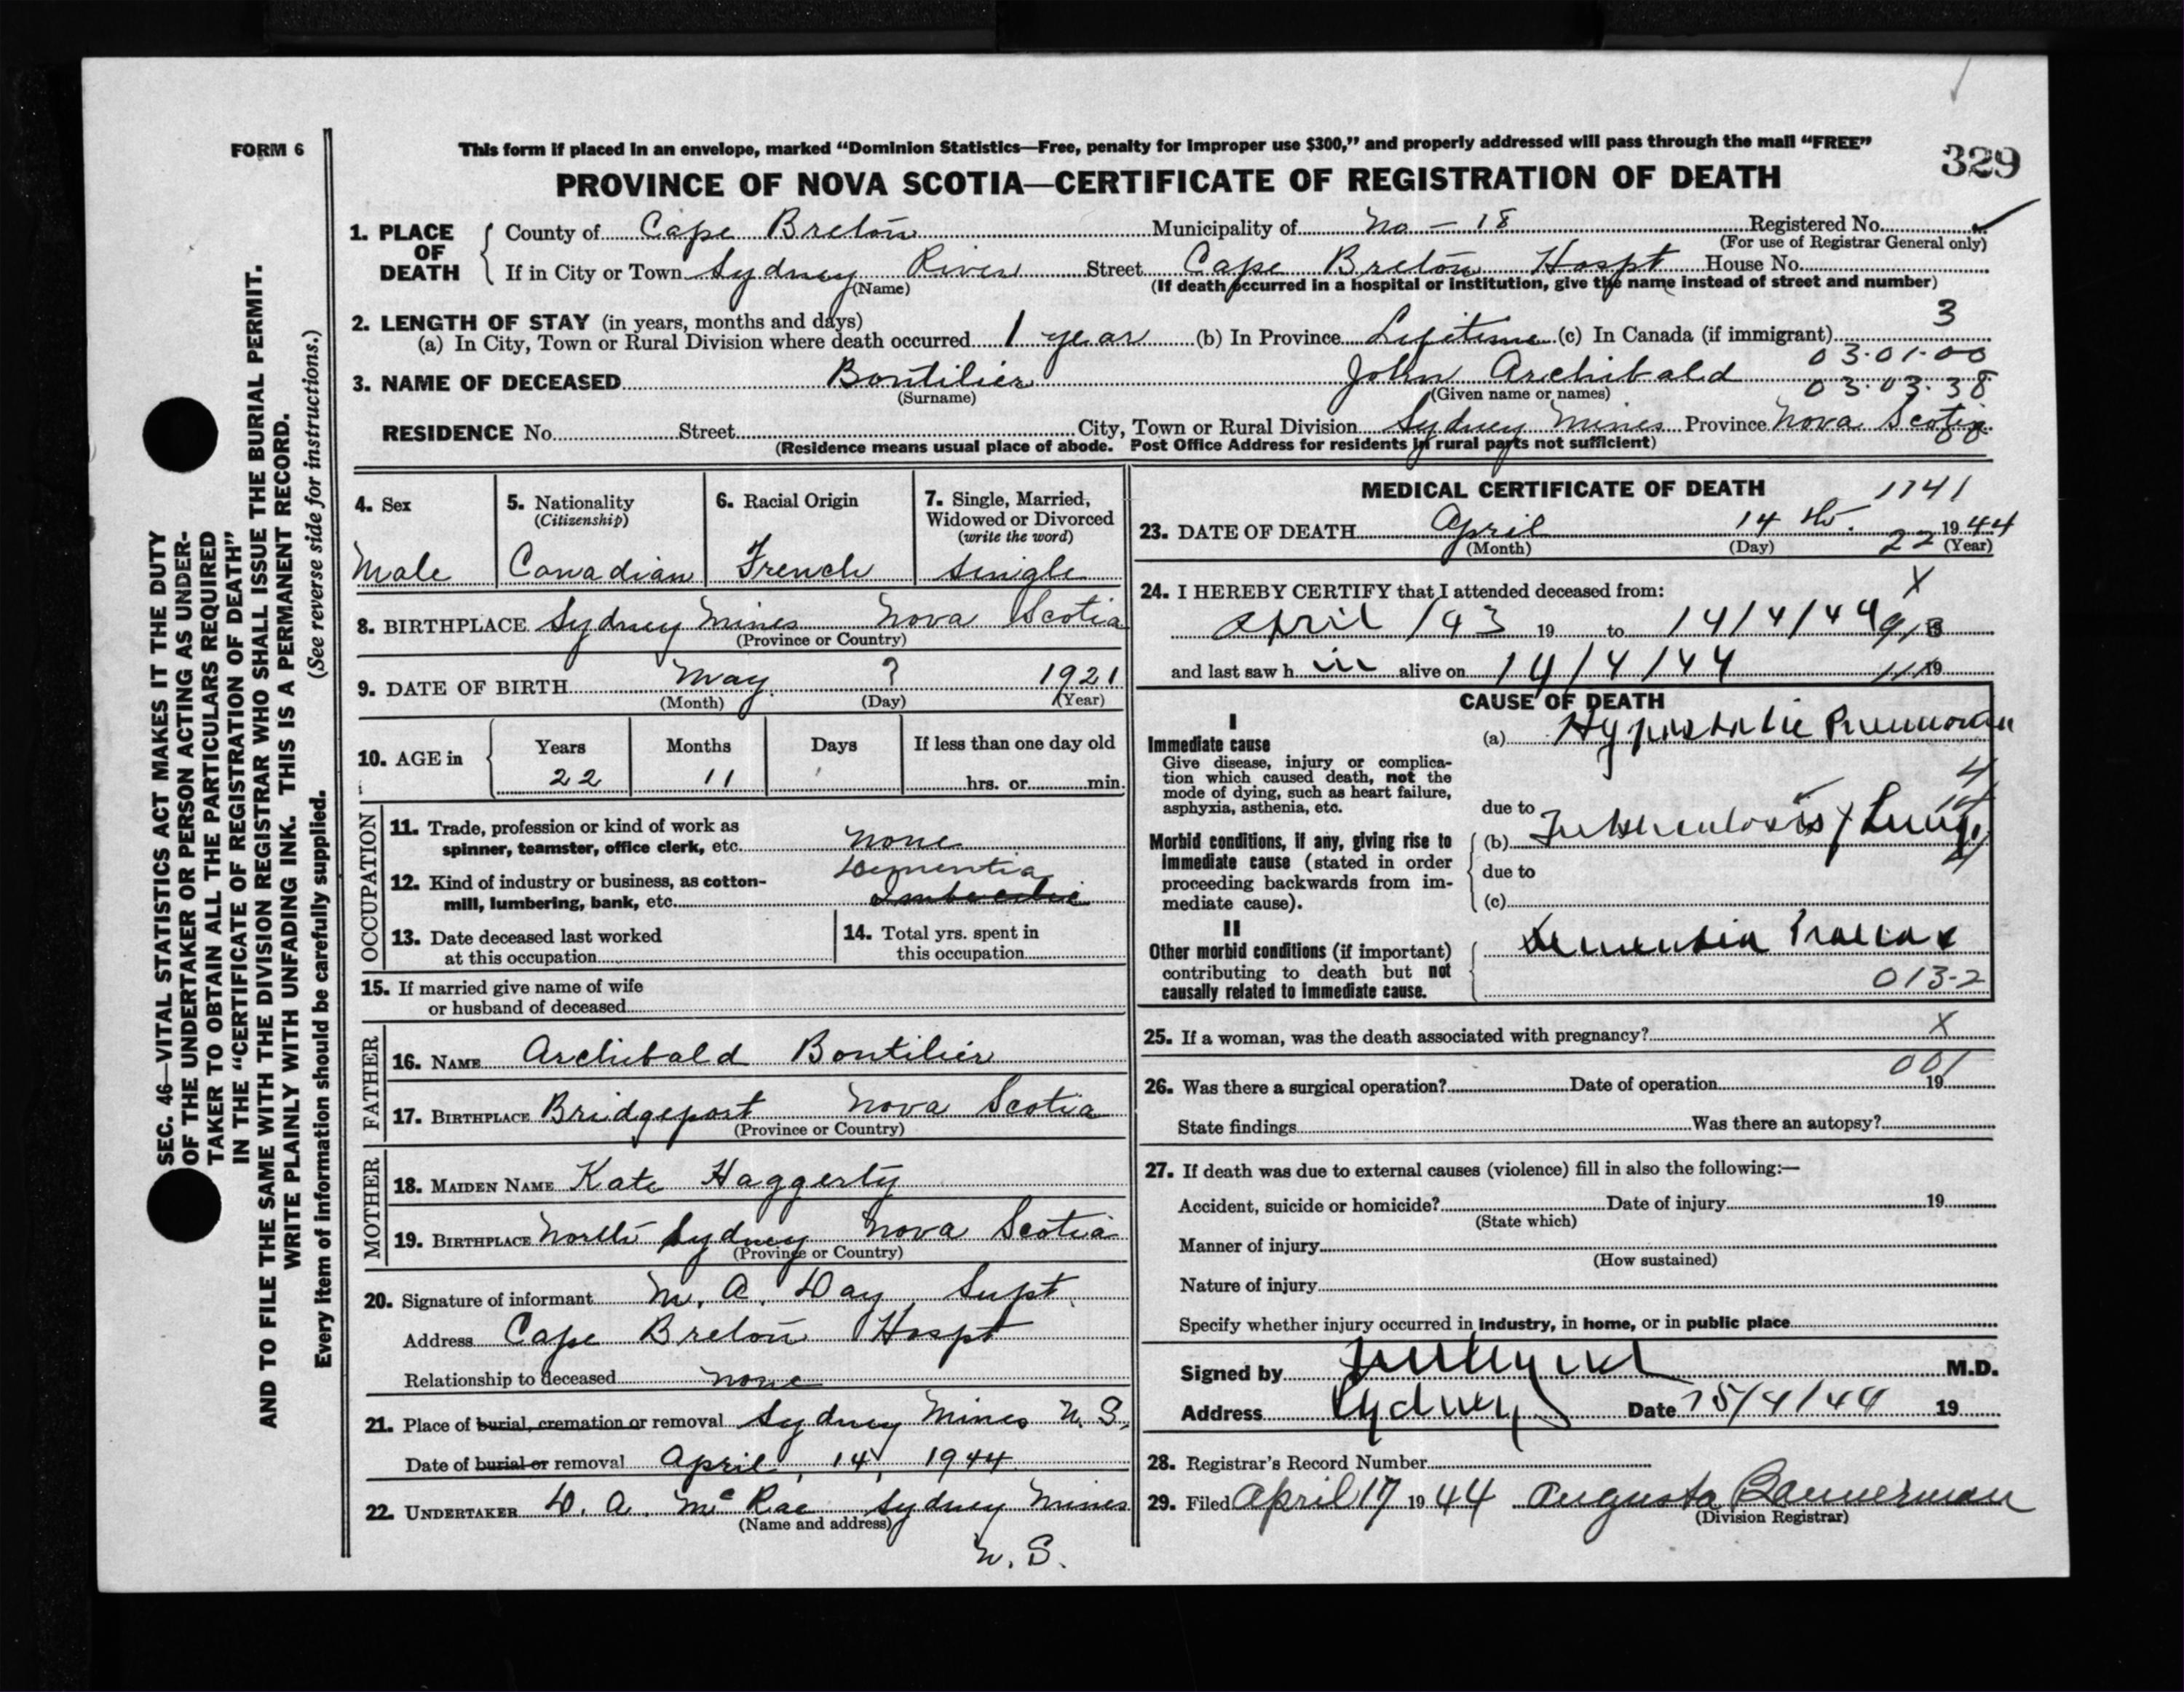 FORM 6
This form if placed in an envelope, marked “Dominion Statistics—Free, penalty for improper use $300,” and properly addressed will pass through the mail “FREE”
329
PROVINCE OF NOVA SCOTIA—CERTIFICATE OF REGISTRATION OF DEATH
1. PLACE OF DEATH
County of Cape Breton Municipality of No - 18 Registered No.
(For use of Registrar General only)
If in City or Town Sydney River Street Cape Breton Hospt House No.
(Name) (If death occurred in a hospital or institution, give the name instead of street and number)
2. LENGTH OF STAY (in years, months and days) 3
(a) In City, Town or Rural Division where death occurred 1 year (b) In Province Lifetime (c) In Canada (if immigrant)
03-01-00
3. NAME OF DECEASED Boutilier John Archibald 03-03-38
(Surname) (Given name or names)
RESIDENCE No. Street City, Town or Rural Division Sydney Mines Province Nova Scotia
(Residence means usual place of abode. Post Office Address for residents in rural parts not sufficient)
4. Sex
Male
5. Nationality
(Citizenship)
Canadian
6. Racial Origin
French
7. Single, Married,
Widowed or Divorced
(write the word)
Single
8. BIRTHPLACE Sydney Mines Nova Scotia
(Province or Country)
9. DATE OF BIRTH May ? 1921
(Month) (Day) (Year)
10. AGE in
Years Months Days If less than one day old
22 11 hrs. or min.
OCCUPATION
11. Trade, profession or kind of work as
spinner, teamster, office clerk, etc. none
Dementia
12. Kind of industry or business, as cotton-
mill, lumbering, bank, etc. Imbecile
13. Date deceased last worked
at this occupation
14. Total yrs. spent in
this occupation
15. If married give name of wife
or husband of deceased
FATHER
16. NAME Archibald Boutilier
17. BIRTHPLACE Bridgeport Nova Scotia
(Province or Country)
MOTHER
18. MAIDEN NAME Kate Haggerty
19. BIRTHPLACE North Sydney Nova Scotia
(Province or Country)
20. Signature of informant M. A. Day Supt.
Address Cape Breton Hospt
Relationship to deceased none
21. Place of burial, cremation or removal Sydney Mines N. S.
Date of burial or removal April, 14, 1944
22. UNDERTAKER D. A. McRae Sydney Mines
(Name and address)
N. S.
MEDICAL CERTIFICATE OF DEATH 1741
23. DATE OF DEATH April 14 th. 1944
(Month) (Day) 22 (Year)
24. I HEREBY CERTIFY that I attended deceased from: X
April /43 19 to 14/4/44 19
and last saw h im alive on 14/4/44 19
CAUSE OF DEATH
I
Immediate cause
Give disease, injury or complica-
tion which caused death, not the
mode of dying, such as heart failure,
asphyxia, asthenia, etc.
(a) Hypostatic Pneumonia
due to
Morbid conditions, if any, giving rise to
immediate cause (stated in order
proceeding backwards from im-
mediate cause).
(b) Tuberculosis of Lungs
due to
(c)
II
Other morbid conditions (if important)
contributing to death but not
causally related to immediate cause.
Dementia Praecox
013-2
25. If a woman, was the death associated with pregnancy? X
001
26. Was there a surgical operation? Date of operation 19
State findings Was there an autopsy?
27. If death was due to external causes (violence) fill in also the following:—
Accident, suicide or homicide? Date of injury 19
(State which)
Manner of injury
(How sustained)
Nature of injury
Specify whether injury occurred in industry, in home, or in public place
Signed by M.D.
Address Sydney Date 15/4/44 19
28. Registrar's Record Number
29. Filed April 17 1944 Augusta Bannerman
(Division Registrar)
SEC. 46—VITAL STATISTICS ACT MAKES IT THE DUTY
OF THE UNDERTAKER OR PERSON ACTING AS UNDER-
TAKER TO OBTAIN ALL THE PARTICULARS REQUIRED
IN THE “CERTIFICATE OF REGISTRATION OF DEATH”
AND TO FILE THE SAME WITH THE DIVISION REGISTRAR WHO SHALL ISSUE THE BURIAL PERMIT.
WRITE PLAINLY WITH UNFADING INK. THIS IS A PERMANENT RECORD.
Every item of information should be carefully supplied. (See reverse side for instructions.)